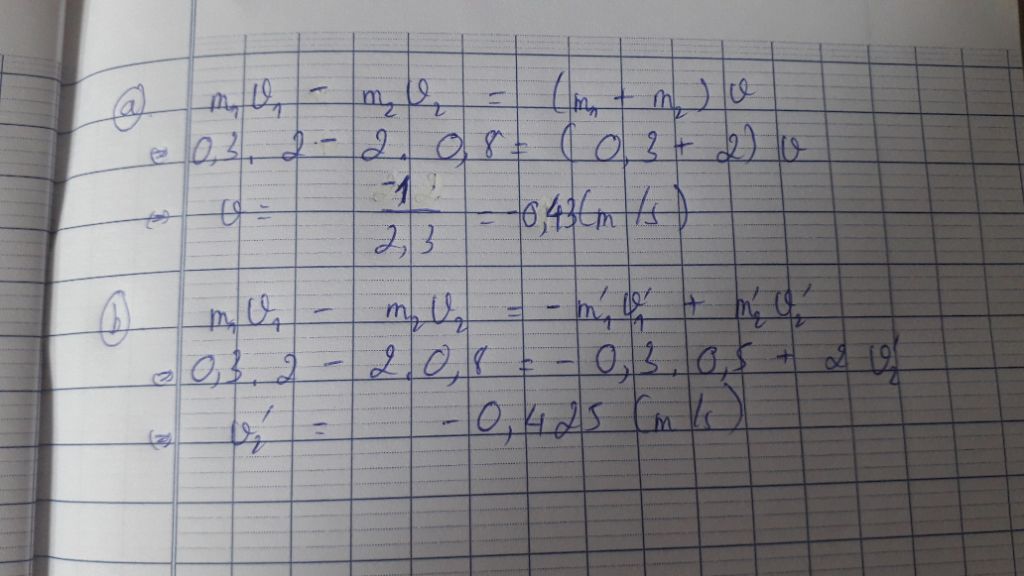 a) m₁v₁ - m₂v₂ = (m₁ + m₂) v
⇔ 0,3. 2 - 2. 0,8 = (0,3 + 2) v
⇔ v = -1/2,3 = -0,43 (m/s)
b) m₁v₁ - m₂v₂ = - m₁'v₁' + m₂'v₂'
⇔ 0,3. 2 - 2.0,8 = - 0,3. 0,5 + 2 v₂'
⇔ v₂' = -0,425 (m/s)